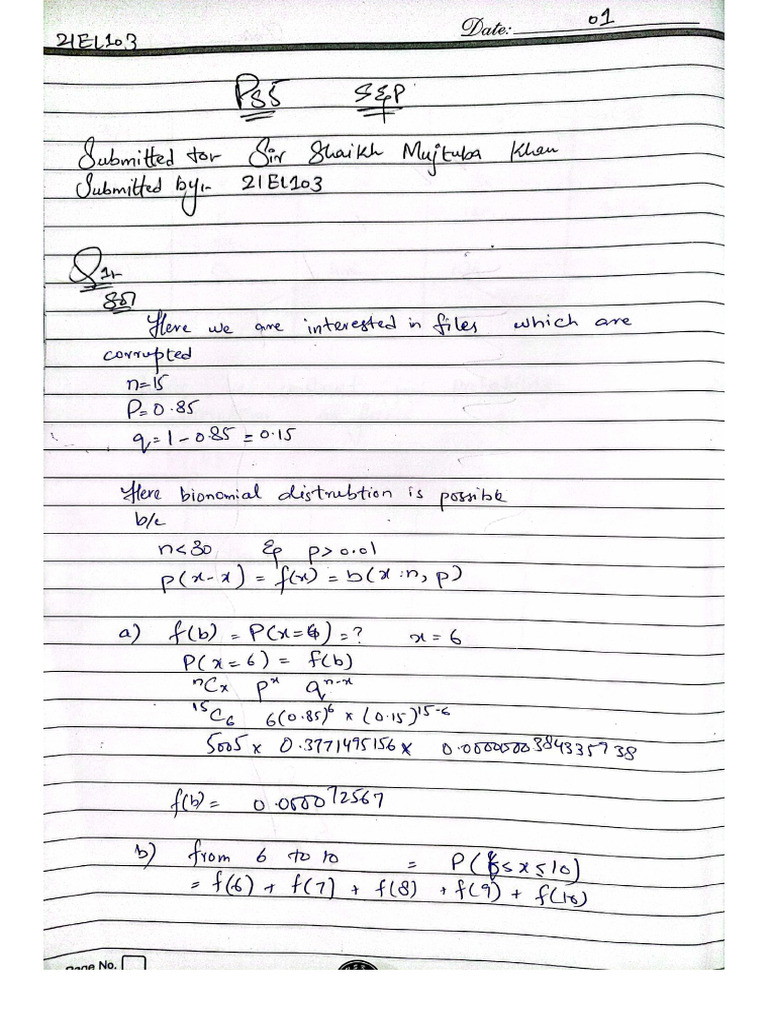 Date: 01
21EL103
PS5 S&P
Submitted for Sir Shaikh Mujtuba Khan
Submitted by:- 21EL103
Q1:-
Sol
Here we are interested in files which are
corrupted
n=15
P=0.85
q=1-0.85=0.15
Here bionomial distrubtion is possible
b/c
n<30 & p>0.01
p(x-x) = f(x) = b(x:n, p)
a) f(6) = P(x=6)=? x=6
P(x=6) = f(6)
ⁿCx pˣ qⁿ⁻ˣ
¹⁵C₆ 6(0.85)⁶ × (0.15)¹⁵⁻⁶
5005 × 0.3771495156 × 0.0000000384335738
f(6)= 0.000072567
b) from 6 to 10 = P(6≤x≤10)
= f(6) + f(7) + f(8) + f(9) + f(10)
Page No.